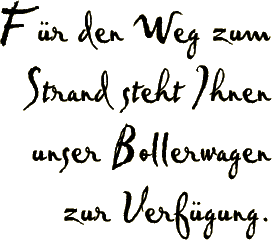 Für den Weg zum
Strand steht Ihnen
unser Bollerwagen
zur Verfügung.